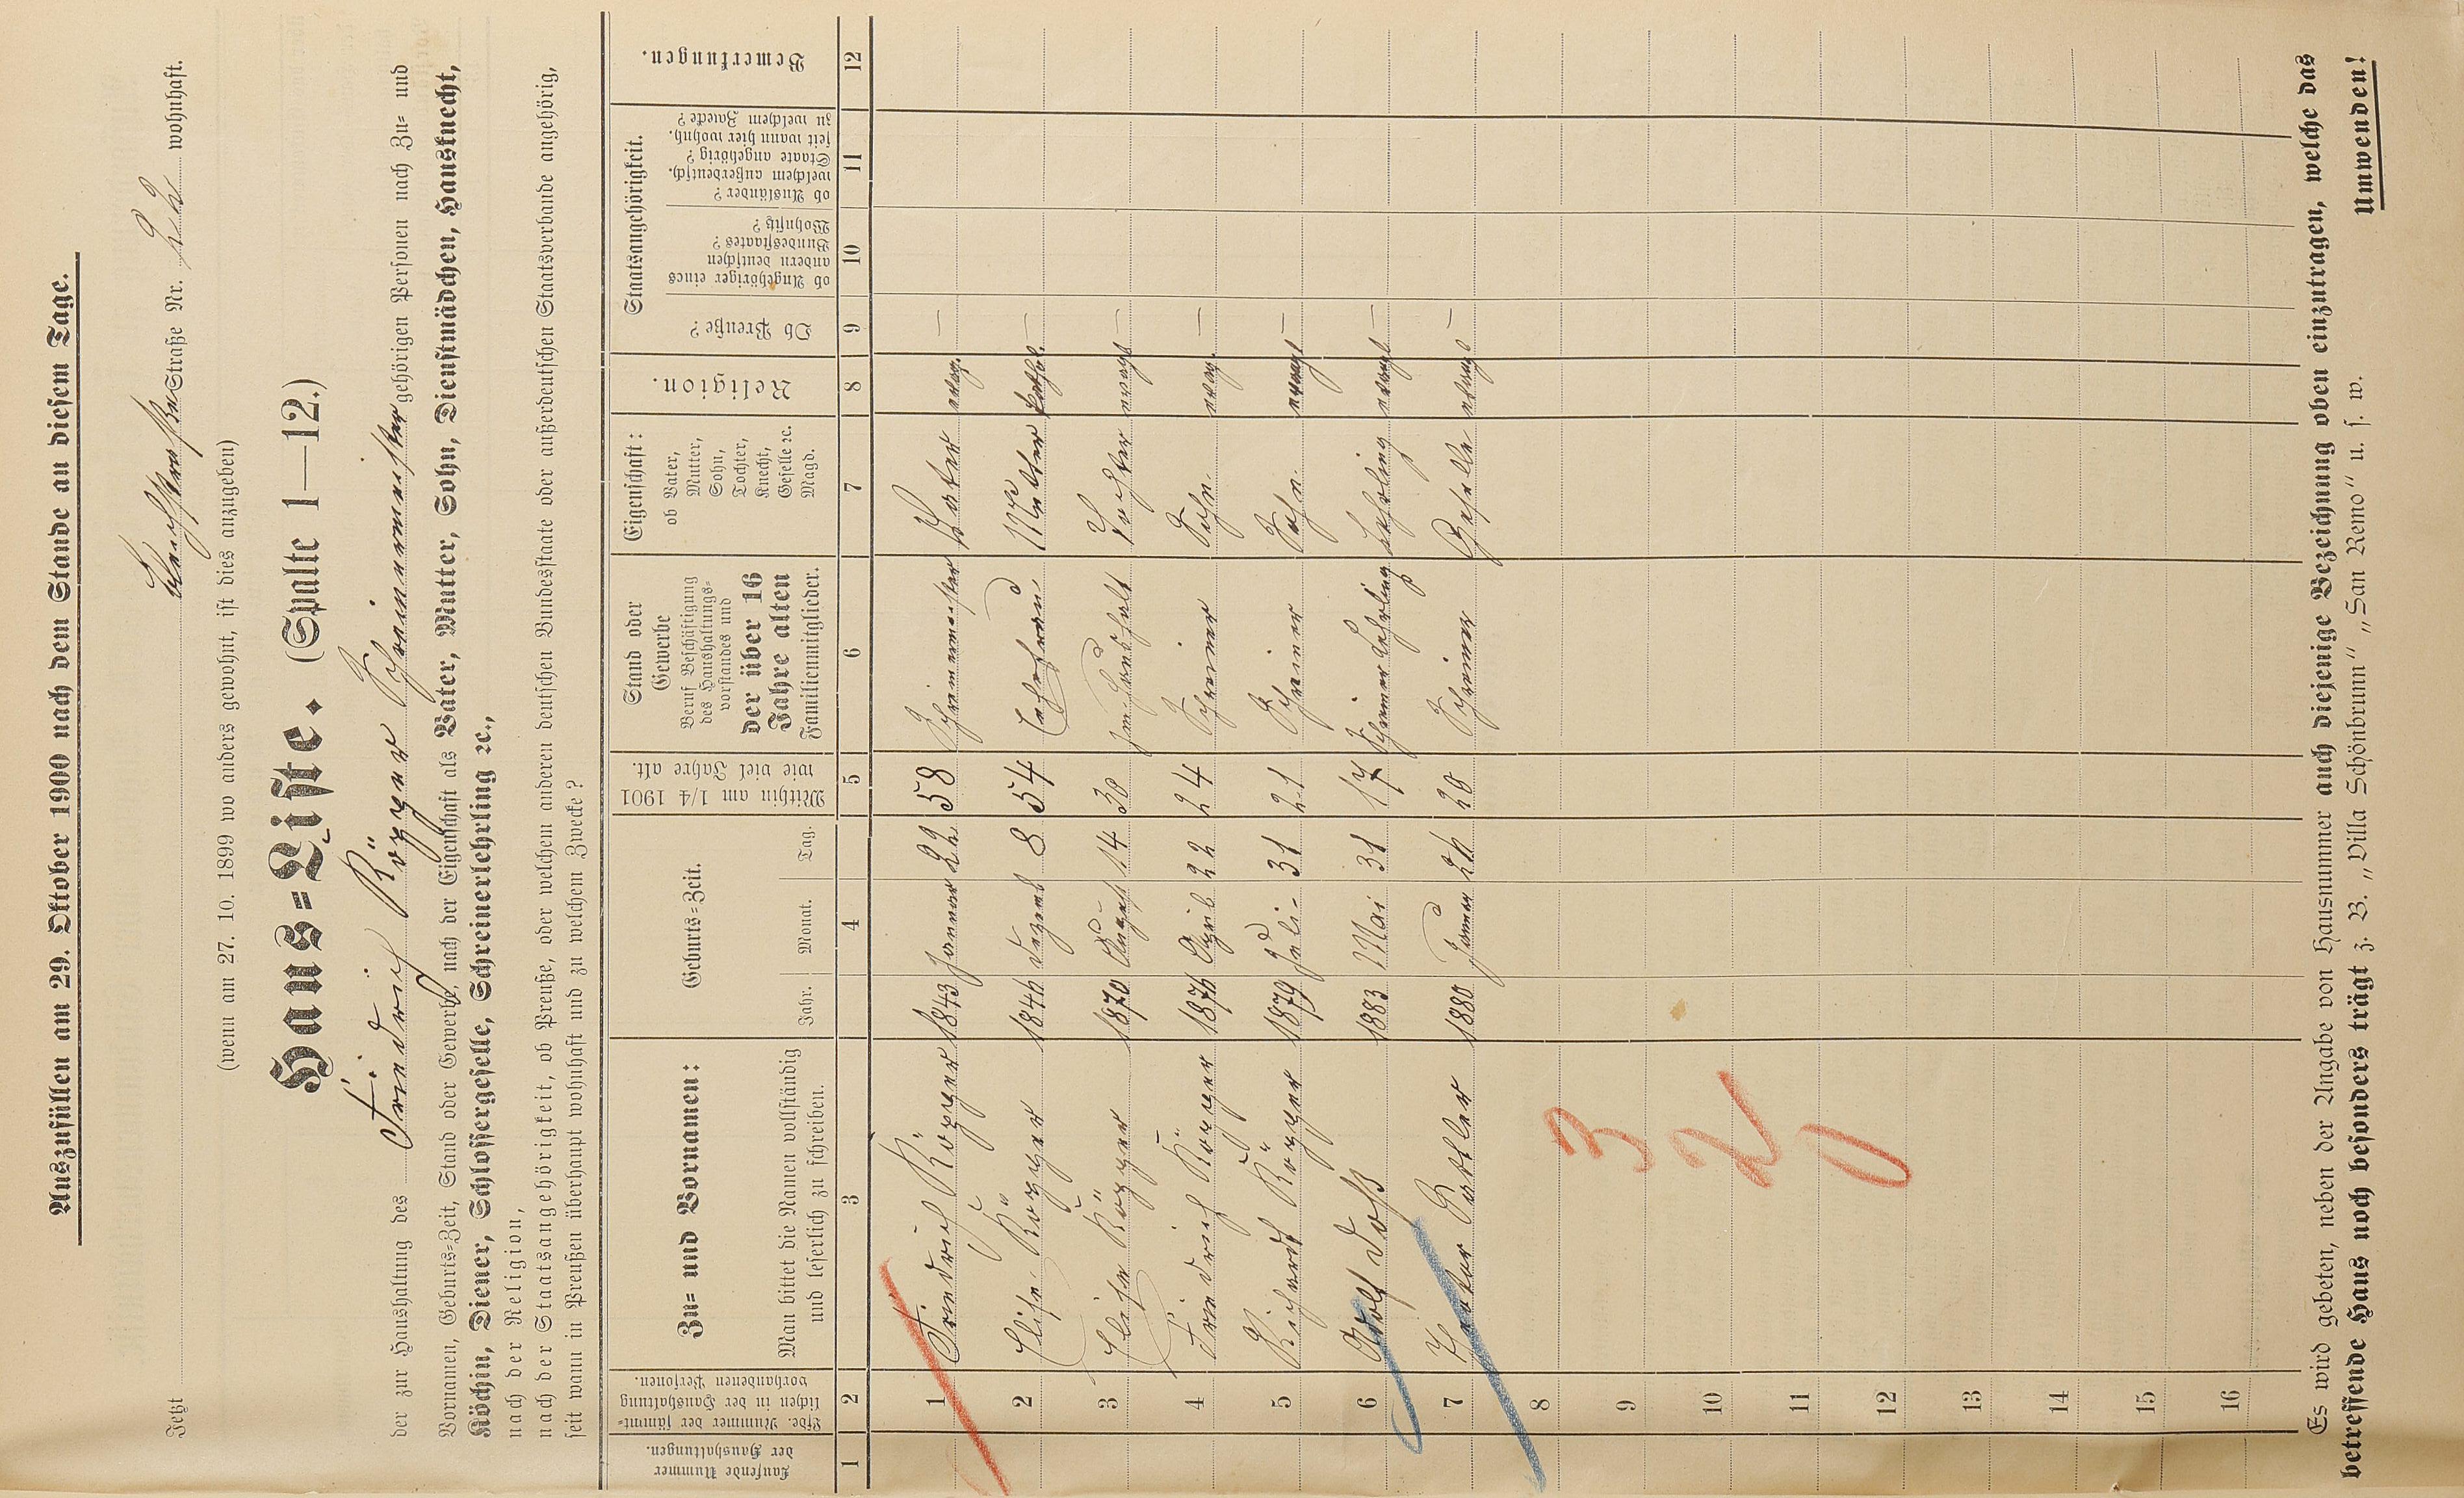 Auszufüllen am 29. Oktober 1900 nach dem Stande an diesem Tage.
Jetzt Straße Nr. wohnhaft.
(wenn am 27. 10. 1899 wo anders gewohnt, ist dies anzugeben)
Haus=Liste. (Spalte 1—12.)
der zur Haushaltung des Friedrich Röpper Schreinermeister gehörigen Personen nach Zu= und
Vornamen, Geburts=Zeit, Stand oder Gewerbe, nach der Eigenschaft als Vater, Mutter, Sohn, Dienstmädchen, Hausknecht,
Köchin, Diener, Schlossergeselle, Schreinerlehrling ꝛc.,
nach der Religion,
nach der Staatsangehörigkeit, ob Preuße, oder welchem anderen deutschen Bundesstaate oder außerdeutschen Staatsverbande angehörig,
seit wann in Preußen überhaupt wohnhaft und zu welchem Zwecke?
Laufende Nummer der Haushaltungen.
Lfde. Nummer der sämmt=lichen in der Haushaltung vorhandenen Personen.
Zu= und Vornamen:
Man bittet die Namen vollständig und leserlich zu schreiben.
Geburts=Zeit.
Jahr. Monat. Tag.
Mithin am 1/4 1901 wie viel Jahre alt.
Stand oder Gewerbe
Beruf Beschäftigung des Haushaltungs=vorstandes und der über 16 Jahre alten Familienmitglieder.
Eigenschaft:
ob Vater, Mutter, Sohn, Tochter, Knecht, Geselle ꝛc. Magd.
Religion.
Staatsangehörigkeit.
Ob Preuße?
ob Angehöriger eines andern deutschen Bundesstaates? Wohnsitz?
ob Ausländer? welchem außerdeutsch. Staate angehörig? seit wann hier wohnh. zu welchem Zwecke?
Bemerkungen.
1 2 3 4 5 6 7 8 9 10 11 12
1 Friedrich Röpper 1843 Januar 22 58 Schreinermeister Vater evag. —
2 Elise Röpper 1846 Dezemb 8 54 Ehefrau Mutter kathol. —
3 Elise Röpper 1870 August 14 30 im Haushalt Tochter evagl —
4 Friedrich Röpper 1876 April 22 24 Schreiner Sohn. evag. —
5 Richardt Röpper 1879 Juli 31 21 Schreiner Sohn. evagl —
6 Adolf Voß 1883 Mai 31 17 Schreiner Lehrling Lehrling evagl —
7 1880 Januar 26 20 Schreiner Geselle evagl —
8
9
10
11
12
13
14
15
16
3
2
0
Es wird gebeten, neben der Angabe von Hausnummer auch diejenige Bezeichnung oben einzutragen, welche das
betreffende Haus noch besonders trägt z. B. „Villa Schönbrunn" „San Remo" u. s. w.
Umwenden!